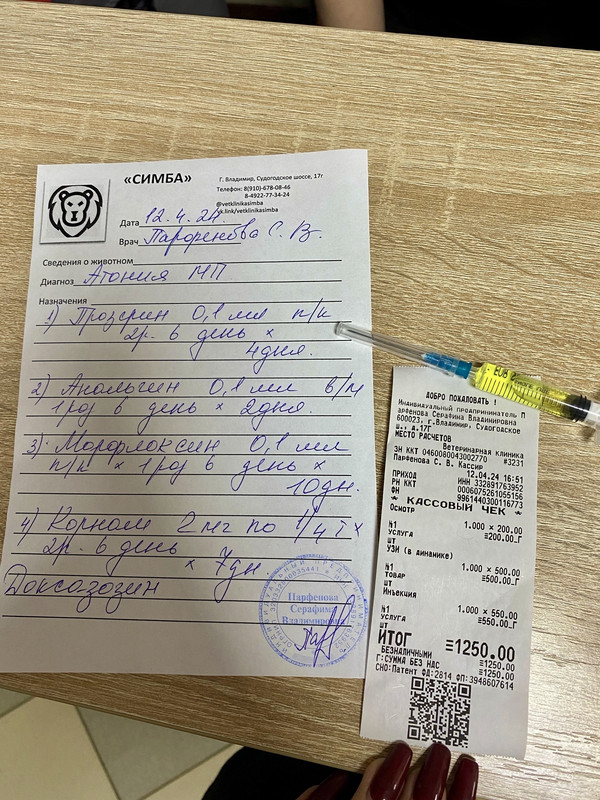 «СИМБА»
Г. Владимир, Судогодское шоссе, 17г
Телефон: 8(910)-678-08-46
8-4922-77-34-24
@vetklinikasimba
vk.link/vetklinikasimba
Дата 12.4.24.
Врач Парфенова С. В.
Сведения о животном
Диагноз Атония МП
Назначения
1) Прозерин 0,1 мл п/к
2р. в день ×
4дня.
2) Анальгин 0,1 мл в/м
1 раз в день × 2дня.
3) Марфлоксин 0,1 мл
п/к × 1 раз в день ×
10дн.
4) Корнам 2 мг по 1/4 т ×
2р. в день
× 7дн.
Доксазозин
Парфенова
Серафима
Владимировна
ДОБРО ПОЖАЛОВАТЬ !
Индивидуальный предприниматель П
арфенова Серафима Владимировна
600023, г.Владимир, Судогодское
ш., д.17Г
МЕСТО РАСЧЕТОВ
Ветеринарная клиника
ЗН ККТ 0460080043002770 #3231
Парфенова С. В. Кассир
12.04.24 16:51
ПРИХОД
ИНН 332891763952
РН ККТ 0006075261055156
ФН 9961440300116773
* КАССОВЫЙ ЧЕК *
Осмотр
№1 1.000 × 200.00
УСЛУГА ≡200.00_Г
шт
УЗИ (в динамике)
№1 1.000 × 500.00
ТОВАР ≡500.00_Г
шт
Инъекция
№1 1.000 × 550.00
УСЛУГА ≡550.00_Г
шт
ИТОГ ≡1250.00
БЕЗНАЛИЧНЫМИ ≡1250.00
Г:СУММА БЕЗ НДС ≡1250.00
СНО:Патент ФД:2814 ФП:3948607614